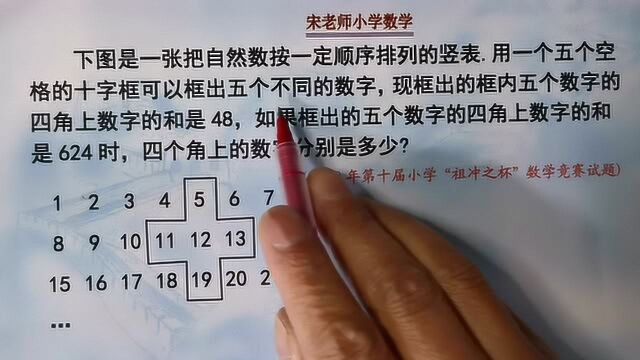 宋老师小学数学
下图是一张把自然数按一定顺序排列的竖表.用一个五个空
格的十字框可以框出五个不同的数字,现框出的框内五个数字的
四角上数字的和是48,如果框出的五个数字的四角上数字的和
是624时,四个角上的数字分别是多少?
年第十届小学“祖冲之杯”数学竞赛试题)
1 2 3 4 5 6 7
8 9 10 11 12 13
15 16 17 18 19 20 2
...